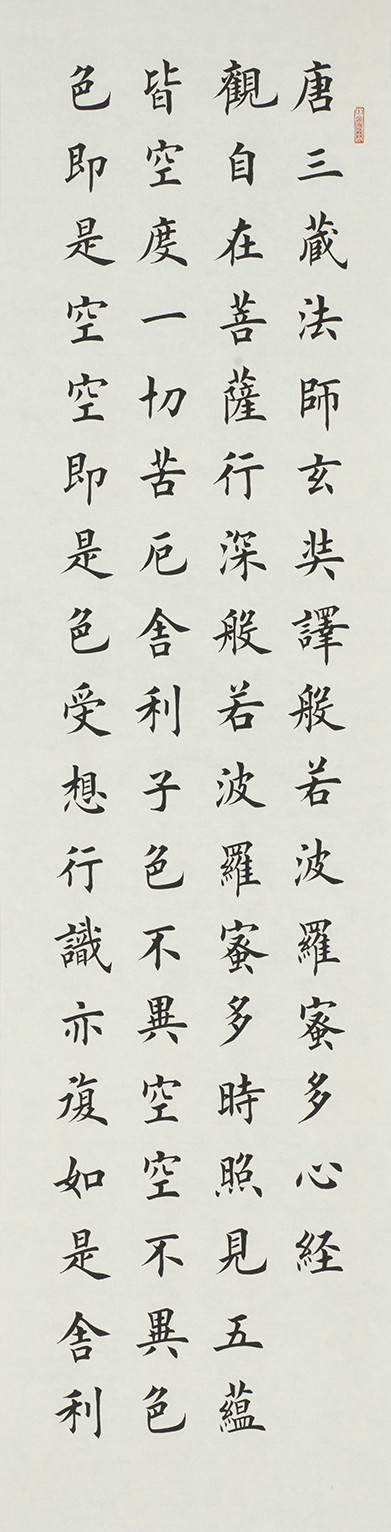 唐三蔵法師玄奘譯般若波羅蜜多心経
觀自在菩薩行深般若波羅蜜多時照見五蘊
皆空度一切苦厄舎利子色不異空空不異色
色即是空空即是色受想行識亦復如是舎利